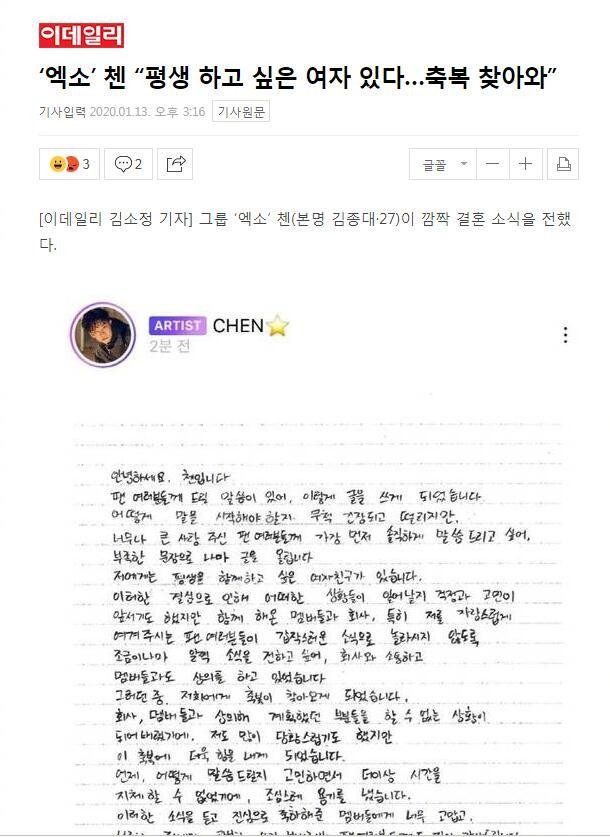 이데일리
‘엑소’ 첸 “평생 하고 싶은 여자 있다…축복 찾아와”
기사입력 2020.01.13. 오후 3:16 기사원문
3 2 글꼴
[이데일리 김소정 기자] 그룹 ‘엑소’ 첸(본명 김종대·27)이 깜짝 결혼 소식을 전했
다.
ARTIST CHEN
2분 전
안녕하세요. 첸입니다
팬 여러분들께 드릴 말씀이 있어, 이렇게 글을 쓰게 되었습니다.
어떻게 말을 시작해야 할지 무척 긴장되고 떨리지만,
너무나 큰 사랑 주신 팬 여러분들께 가장 먼저 솔직하게 말씀 드리고 싶어,
부족한 문장으로 나마 글을 올립니다
저에게는 평생을 함께하고 싶은 여자친구가 있습니다.
이러한 결심으로 인해 어떠한 상황들이 일어날지 걱정과 고민이
앞서기도 했지만 함께 해온 멤버들과 회사, 특히 저를 자랑스럽게
여겨주시는 팬 여러분들이 갑작스러운 소식으로 놀라시지 않도록
조금이나마 일찍 소식을 전하고 싶어, 회사와 소통하고
멤버들과도 상의를 하고 있었습니다
그러던 중, 저희에게 축복이 찾아오게 되었습니다.
회사, 멤버들과 상의해 계획했던 부분들을 할 수 없는 상황이
되어버렸기에, 저도 많이 당황스럽기도 했지만
이 축복에 더욱 힘을 내게 되었습니다.
언제, 어떻게 말씀 드릴지 고민하면서 더이상 시간을
지체 할 수 없었기에, 조심스레 용기를 냈습니다.
이러한 소식을 듣고 진심으로 축하해준 멤버들에게 너무 고맙고,